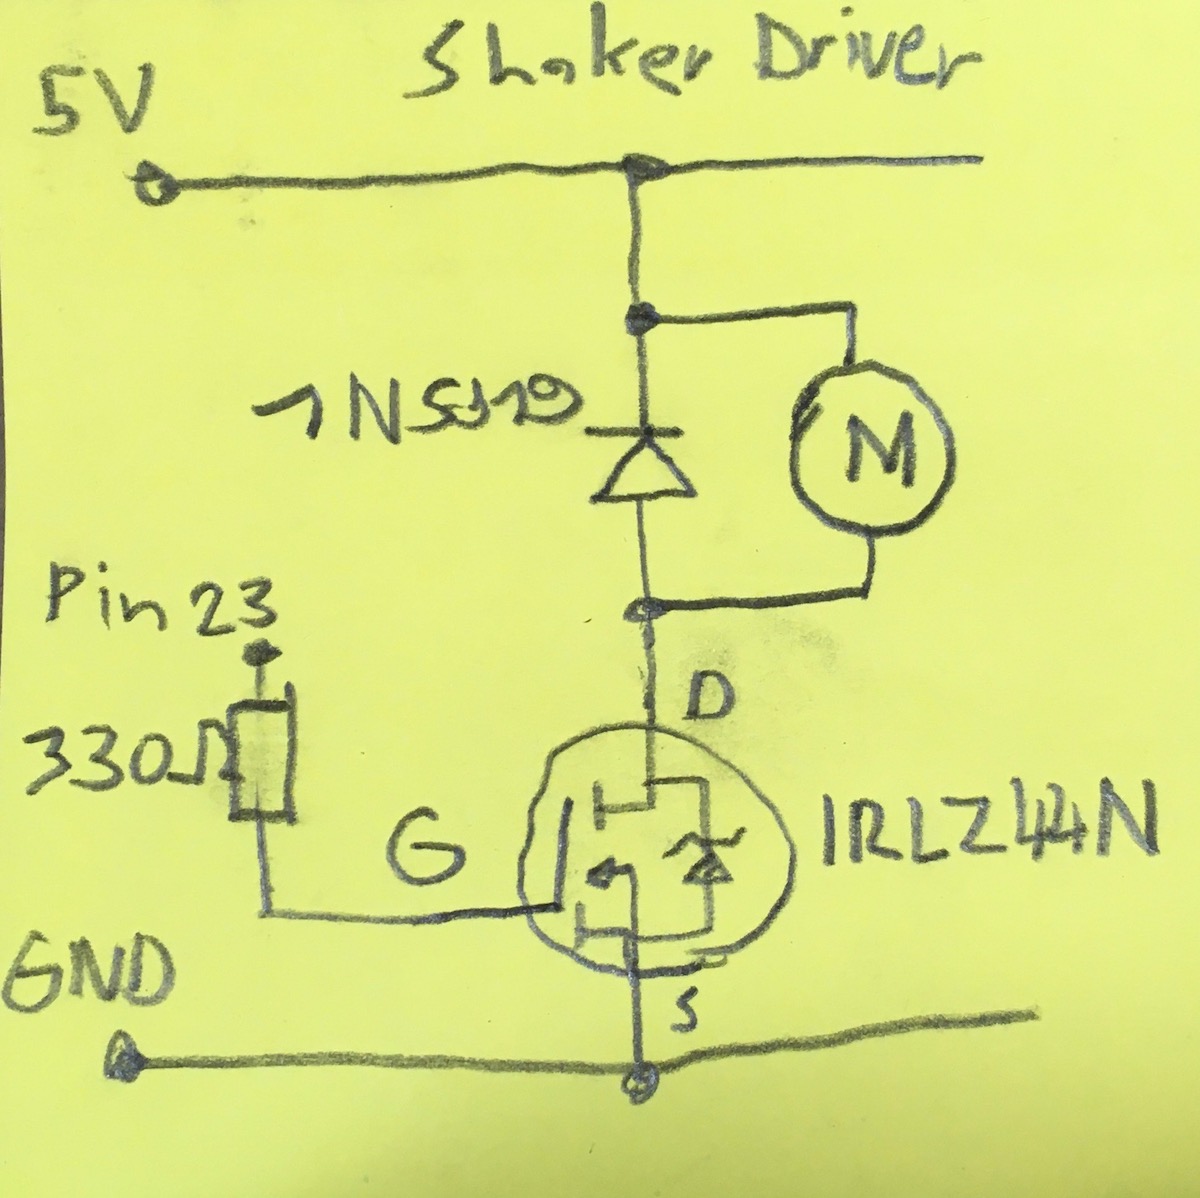 Shaker Driver
5V
1N5819
M
Pin 23
330Ω
D
G
IRLZ44N
GND
S